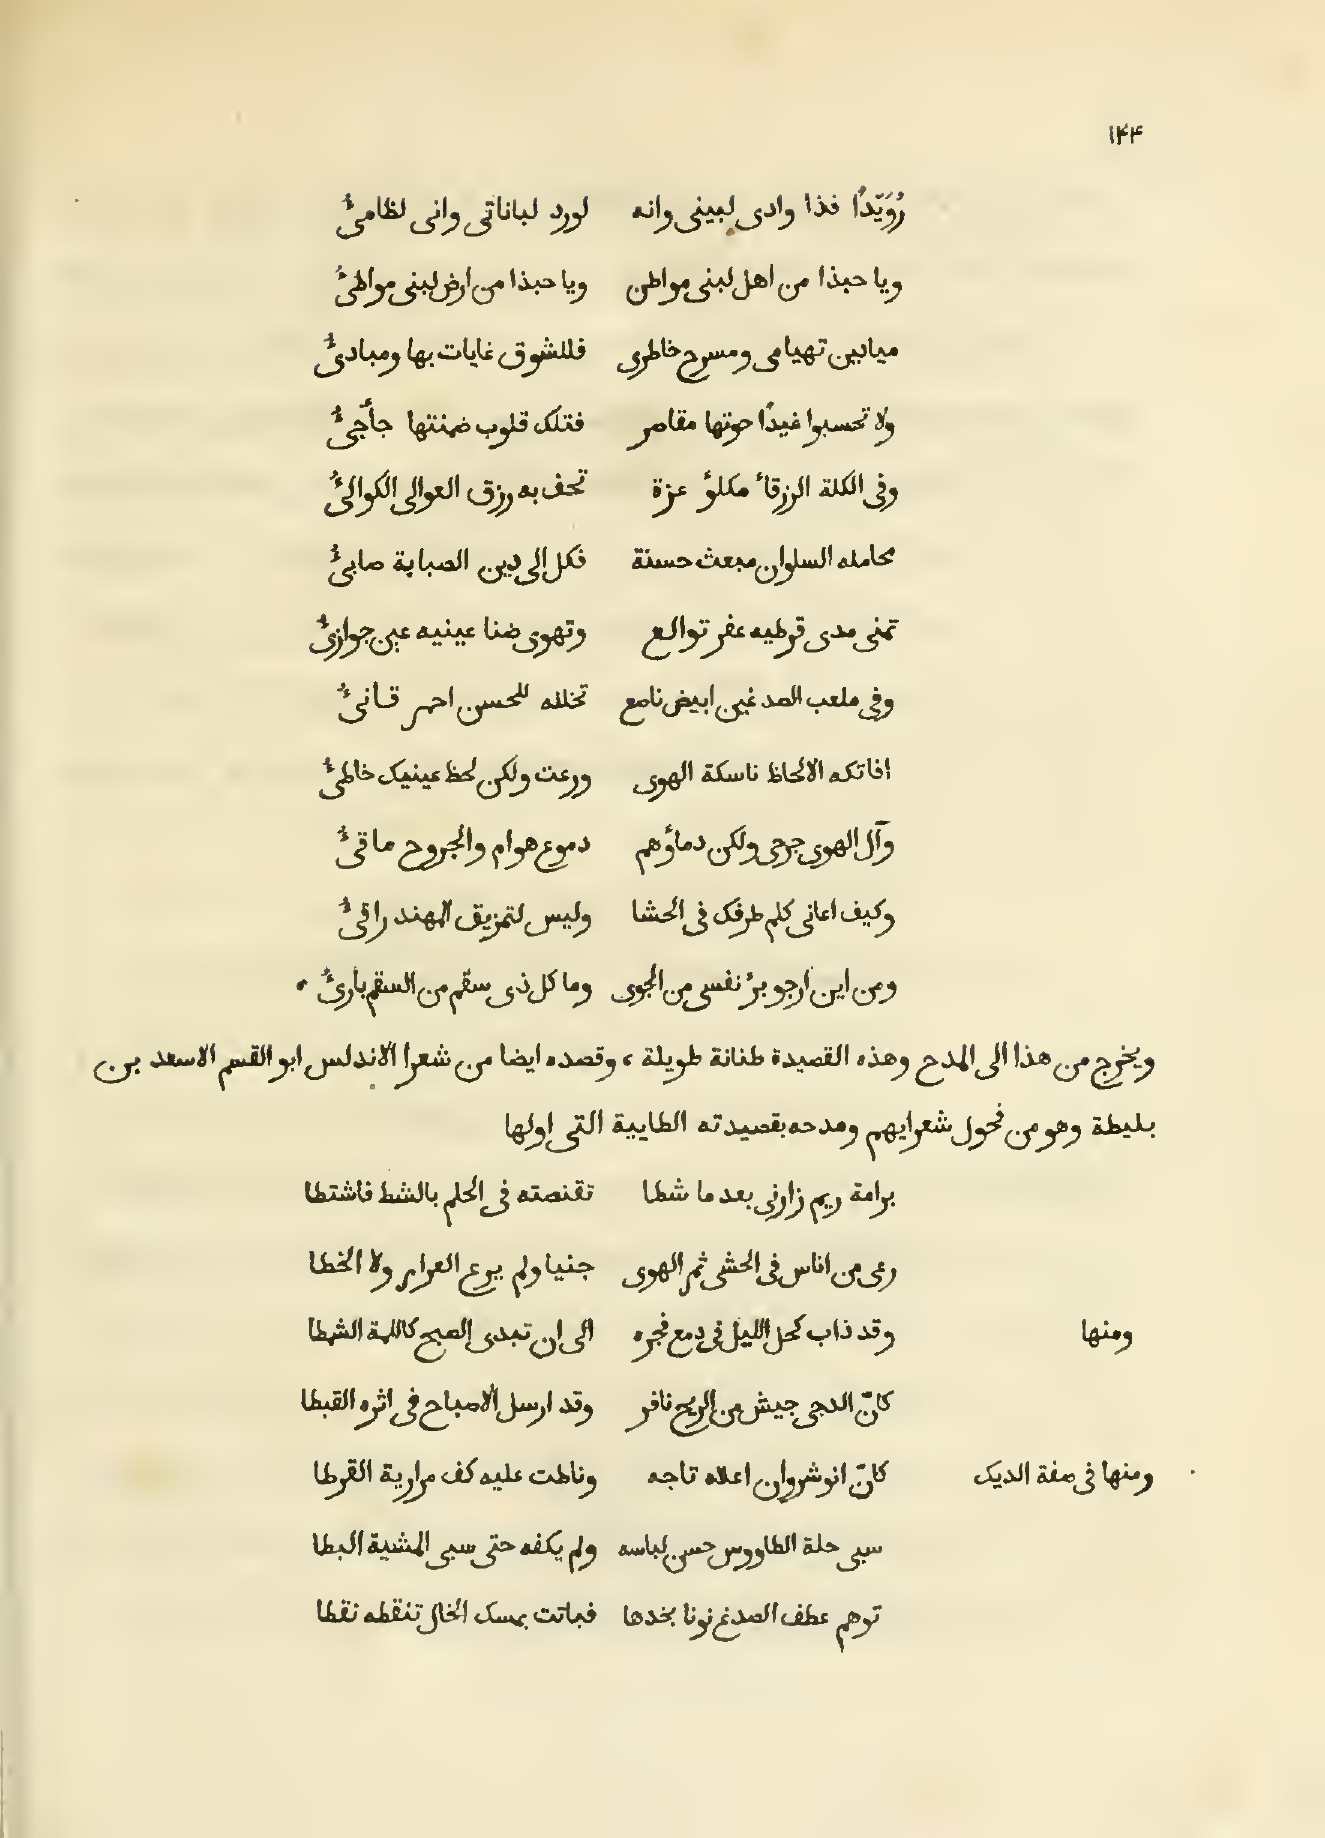 ١٤٤
رُوَيّدًا فذا وادى لبينى وانه لورد لباناتى وانى لظامئُ
ويا حبذا من اهل لبنى مواطن ويا حبذا من ارض لبنى مواطئُ
ميادين تهيامى ومسرح خاطرى فللشوق غايات بها ومبادئُ
ولا تحسبوا غيدًا حوتها مقاصر فتلك قلوب ضمنتها جآجئُ
وفى الكلة الزرقاء مكلؤ عزة تحف به زرق العوالى الكوالئُ
محامله السلوان مبعث حسنة فكل الى دين الصبابة صابئُ
تمنى مدى قرطيه عفر توالع وتهوى ضنا عينيه عين جوازئُ
وفى ملعب الصدغين ابيض ناصع تخلله للحسن احمر قانئُ
افاتكه الالحاظ ناسكة الهوى ورعت ولكن لحظ عينيك خاطئُ
وآل الهوى جرحى ولكن دماؤهم دموع هوام والجروح ماقئُ
وكيف اعانى كلم طرفك فى الحشا وليس لتمزيق المهند راقئُ
ومن اين ارجو برُ نفسى من الجوى وما كل ذى سقم من السقم بارئُ •
ويخرج من هذا الى المدح وهذه القصيدة طنانة طويلة ، وقصده ايضا من شعرأ الاندلس ابو القسم الاسعد بن
بليطة وهو من فحول شعرايهم ومدحه بقصيدته الطايية التى اولها
برامة ريم زارنى بعد ما شطا تقنصته فى الحلم بالشط فاشتطا
رعى من اناس فى الحشى ثمر الهوى جنيا ولم يرع العرار ولا الخطا
ومنها وقد ذاب كحل الليل فى دمع فجره الى ان تبدى الصبح كاللمة الشمطا
كانّ الدجى جيش من الريح نافر وقد ارسل الاصباح فى اثره القبطا
ومنها فى صفة الديك كانّ انوشروان اعلاه تاجه وناطت عليه كف مرارية القرطا
سبى حلة الطاووس حسن لباسه ولم يكفه حتى سبى المشية البطا
توهم عطف الصدغ نونا بخدها فباتت بمسك الخال تنقطه نقطا